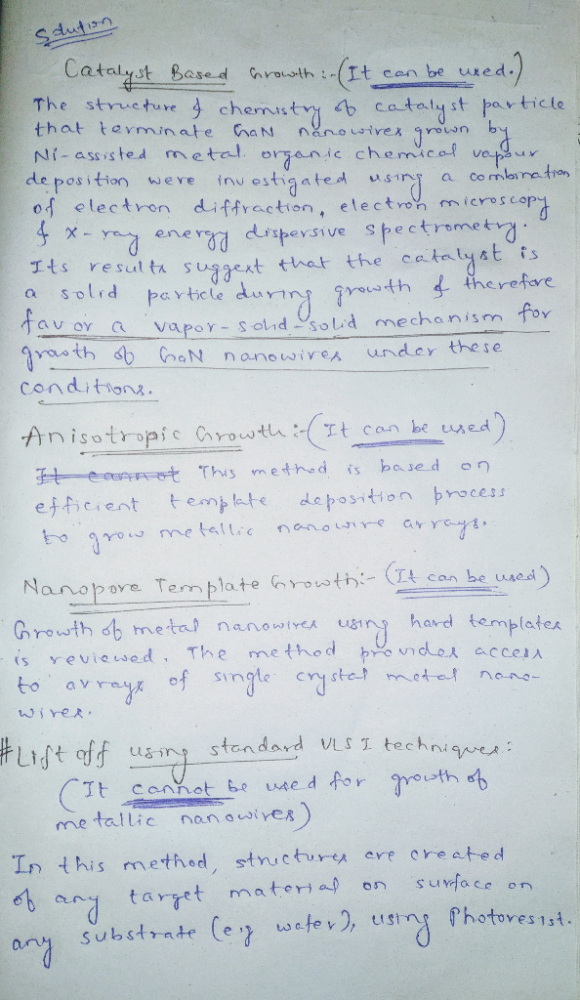 Solution
Catalyst Based Growth :- (It can be used.)
The structure & chemistry of catalyst particle
that terminate GaN nanowires grown by
Ni-assisted metal organic chemical vapour
deposition were investigated using a combination
of electron diffraction, electron microscopy
& x-ray energy dispersive spectrometry.
Its results suggest that the catalyst is
a solid particle during growth & therefore
favor a vapor-solid-solid mechanism for
growth of GaN nanowires under these
conditions.
Anisotropic Growth :- (It can be used)
It cannot This method is based on
efficient template deposition process
to grow metallic nanowire arrays.
Nanopore Template Growth :- (It can be used)
Growth of metal nanowires using hard templates
is reviewed. The method provides access
to arrays of single crystal metal nano-
wires.
# Lift off using standard VLSI techniques :
(It cannot be used for growth of
metallic nanowires)
In this method, structures are created
of any target material on surface on
any substrate (e.g wafer), using Photoresist.